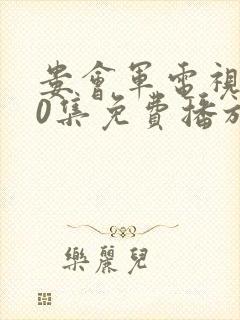 娄會軍電視
0集免費播放
樂麗兒